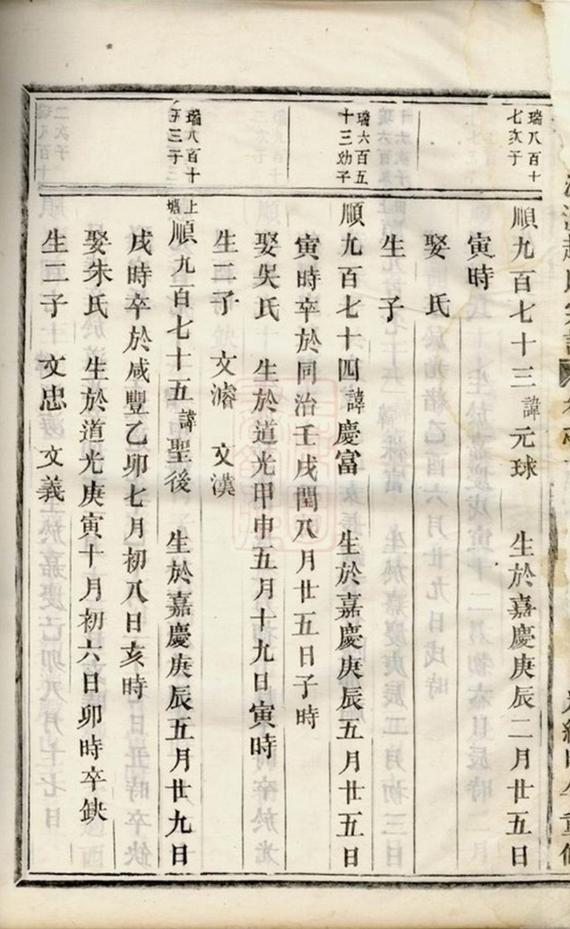 瑞八百十
七次子
順九百七十三諱元球　生於嘉慶庚辰二月廿五日
寅時
娶　氏
生　子
瑞六百五
十三幼子
順九百七十四諱慶富　生於嘉慶庚辰五月廿五日
寅時卒於同治壬戌閏八月廿五日子時
娶吳氏　生於道光甲申五月十九日寅時
生二子　文濬　文漢
瑞八百十
三子
上墻
順九百七十五諱聖後　生於嘉慶庚辰五月廿九日
戌時卒於咸豐乙卯七月初八日亥時
娶朱氏　生於道光庚寅十月初六日卯時卒缺
生二子　文忠　文義